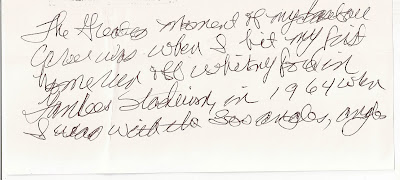 The Greates moment of my baseball
Career was when I hit my first
homerun off whitney ford in
Yankees Stadeium, in 1964 when
I was with the Los angles, angles